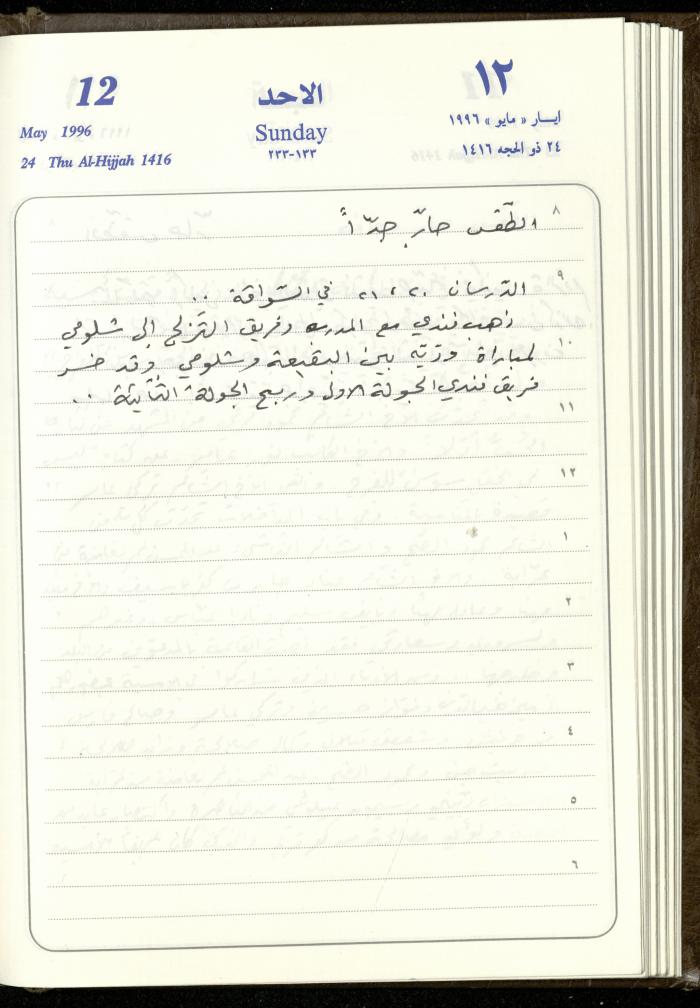 12
May 1996
24 Thu Al-Hijjah 1416
الاحد
Sunday
٢٣٣-١٣٣
١٢
ايـــار « مايو » ١٩٩٦
٢٤ ذو الحجه ١٤١٦
٨
الطّقس حارّ جدّاً
٩
الدّرسان ٢٠، ٢١ في السّواقة ..
ذهب فندي مع المدرسه وفريق التزلج الى شلومي
١٠
لمباراة وديّه بين البقيعة وشلومي وقد خسر
فريق فندي الجولة الاولى وربح الجولة الثانية ..
١١
١٢
١
٢
٣
٤
٥
٦